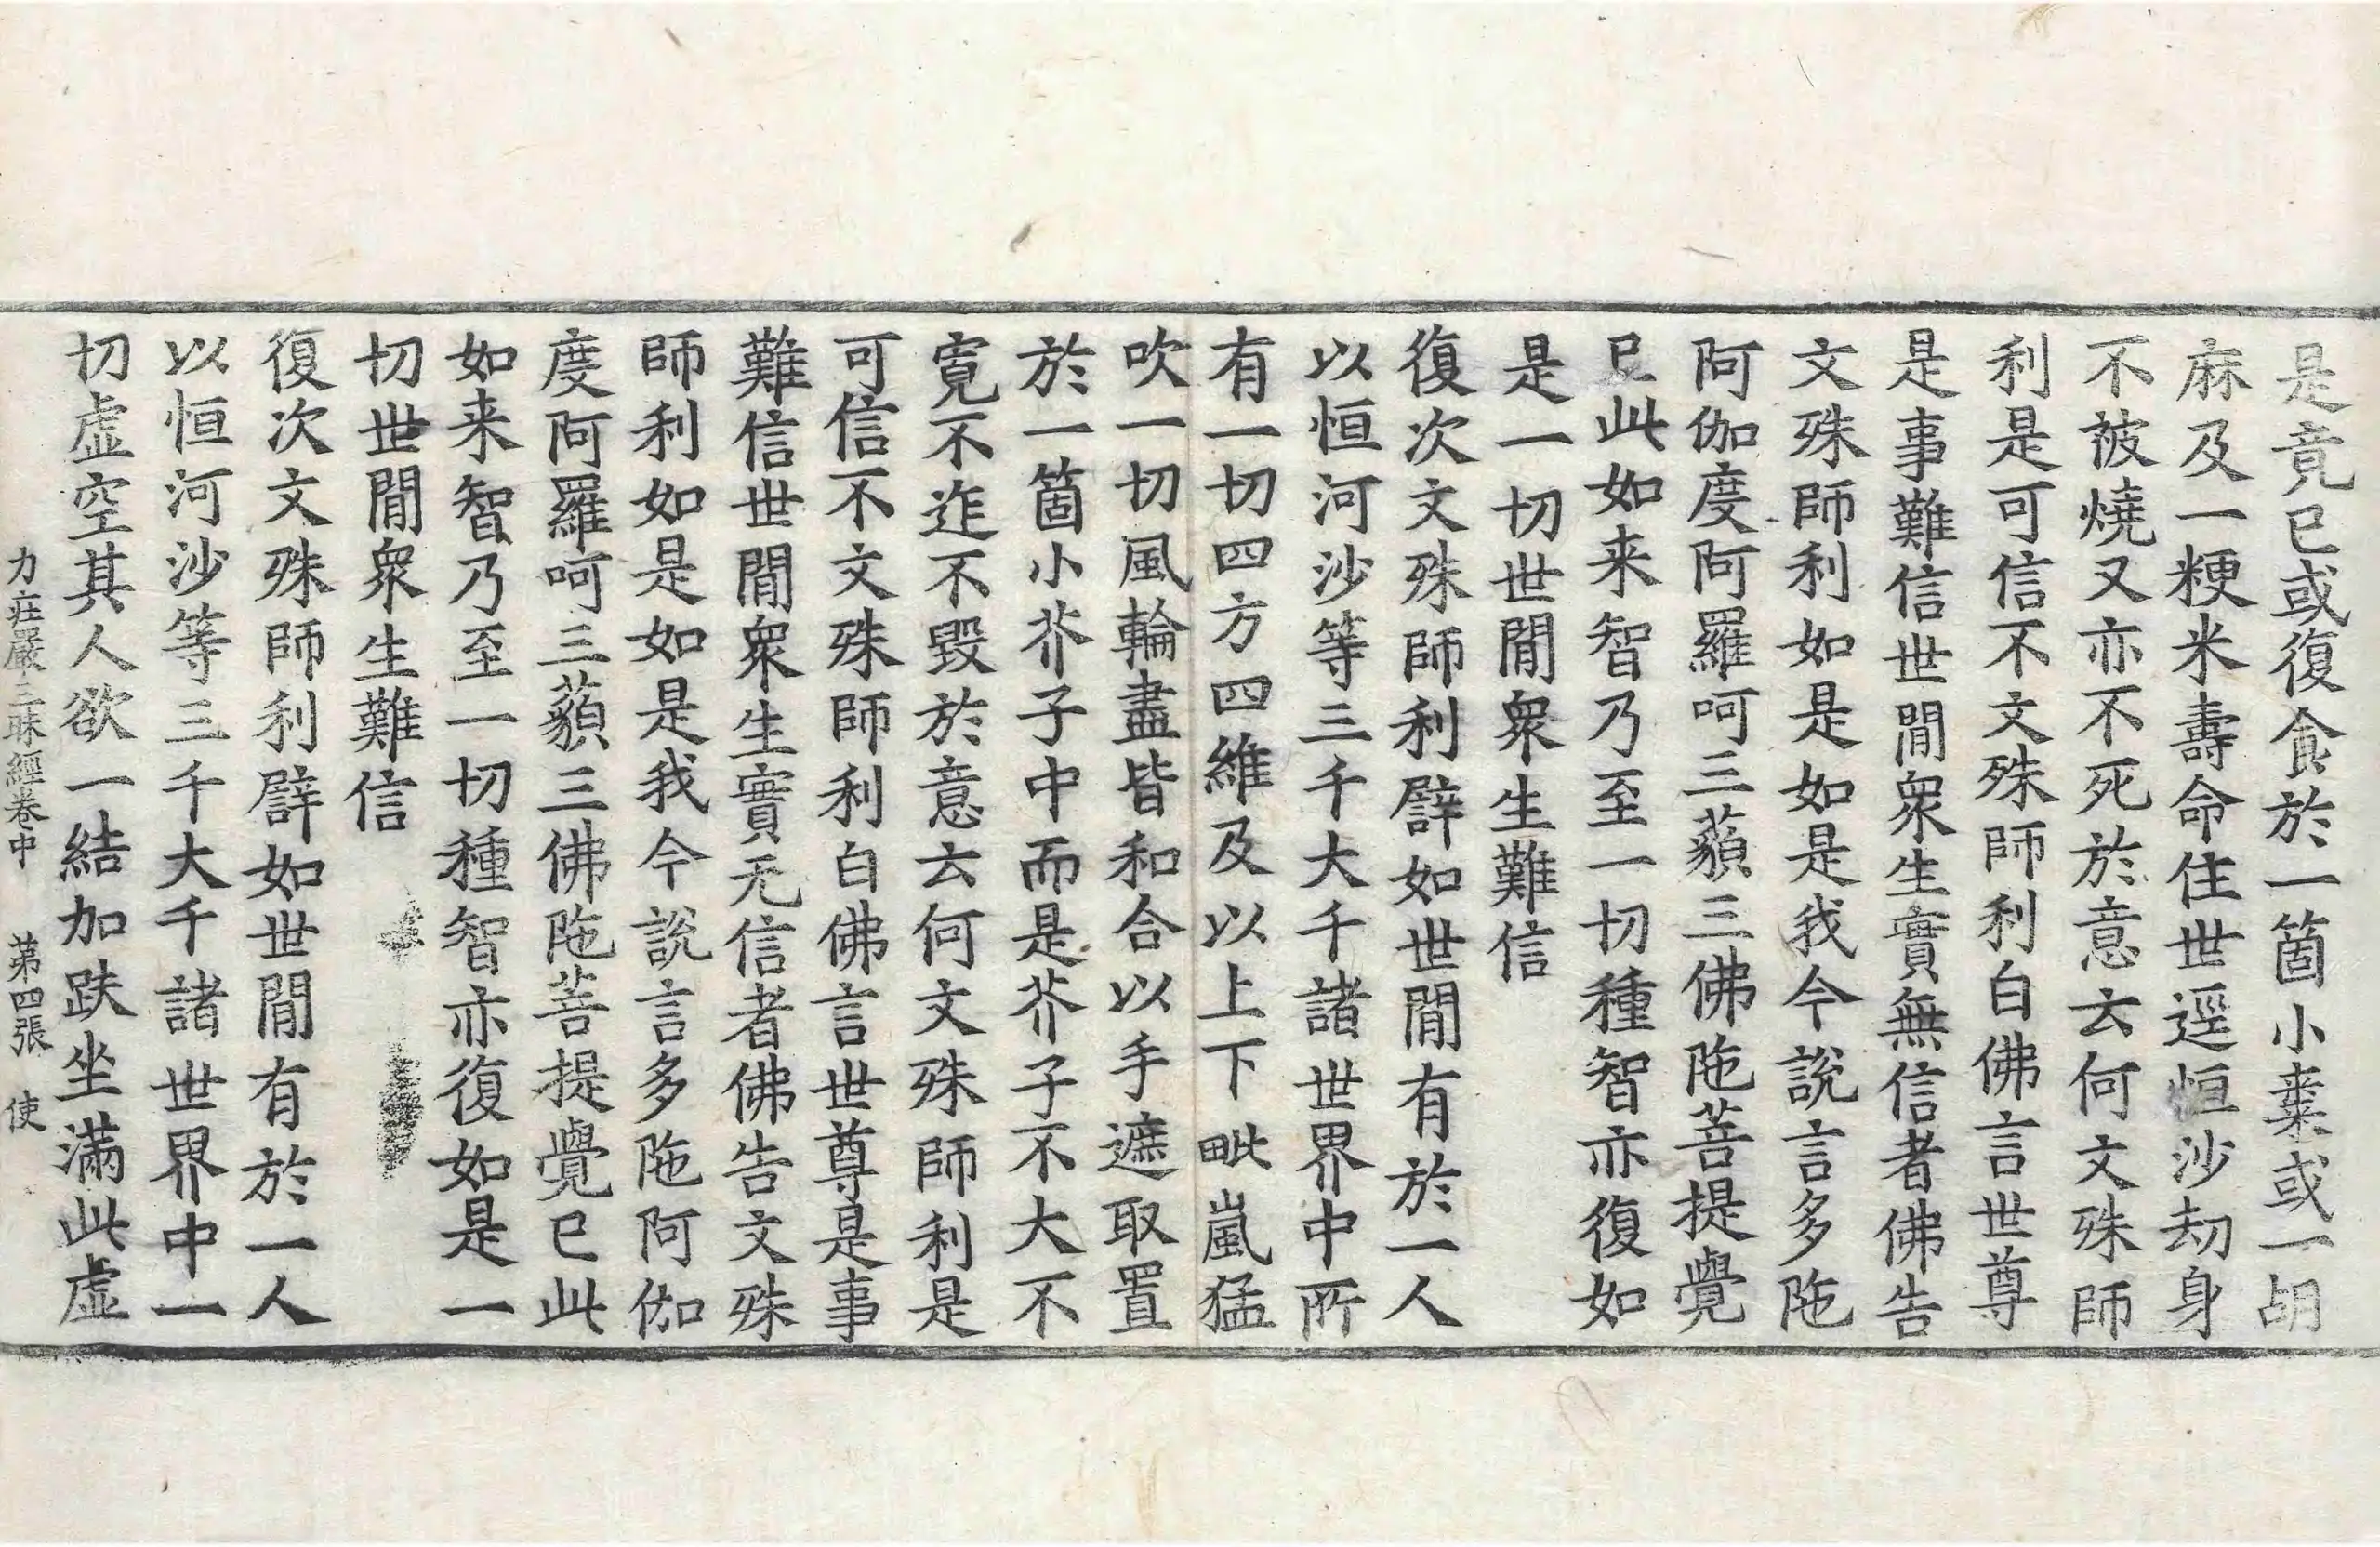 是竟已或復食於一箇小棗或一胡
麻及一粳米壽命住世逕恒沙劫身
不被燒又亦不死於意云何文殊師
利是可信不文殊師利白佛言世尊
是事難信世閒衆生實無信者佛告
文殊師利如是如是我今說言多陁
阿伽度阿羅呵三藐三佛陁菩提覺
已此如来智乃至一切種智亦復如
是一切世閒衆生難信
復次文殊師利譬如世閒有於一人
以恒河沙等三千大千諸世界中所
有一切四方四維及以上下毗嵐猛
吹一切風輪盡皆和合以手遮取置
於一箇小芥子中而是芥子不大不
寬不迮不毀於意云何文殊師利是
可信不文殊師利白佛言世尊是事
難信世閒衆生實无信者佛告文殊
師利如是如是我今說言多陁阿伽
度阿羅呵三藐三佛陁菩提覺已此
如来智乃至一切種智亦復如是一
切世閒衆生難信
復次文殊師利譬如世閒有於一人
以恒河沙等三千大千諸世界中一
切虛空其人欲一結加趺坐滿此虛
力莊嚴三昧經卷中 第四張 使